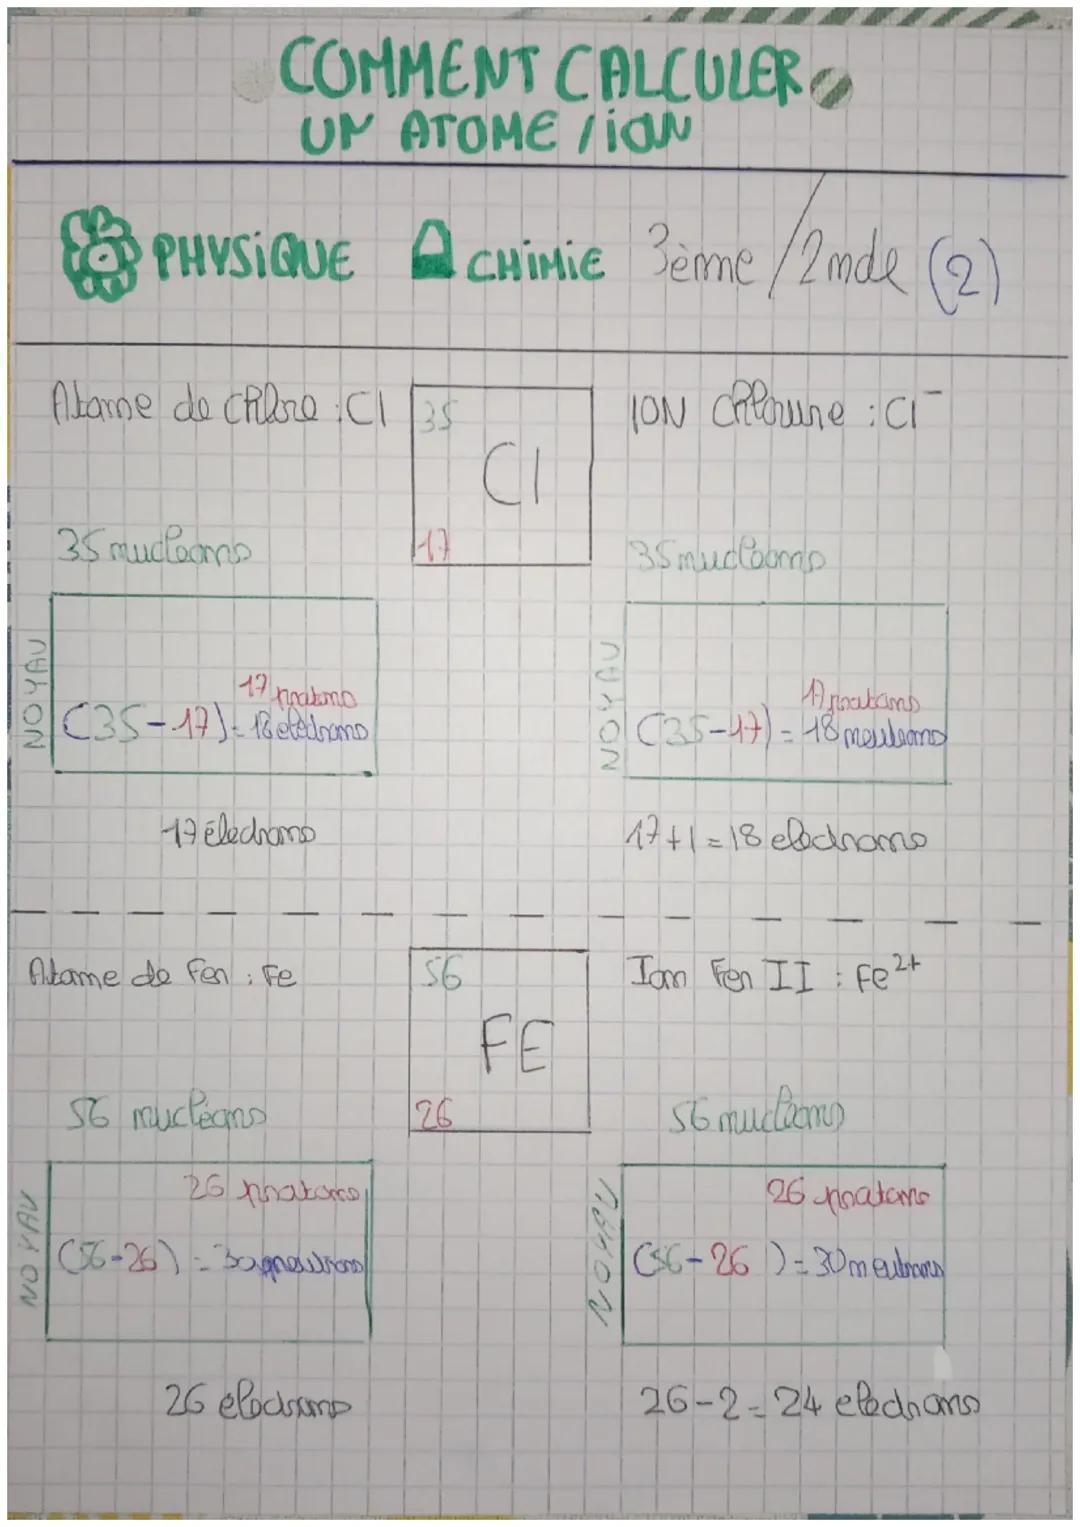 COMMENT CALCULER
UN ATOME / iON
PHYSiQUE CHiMiE 3ème / 2nde (2)
Atome de chlore : Cl
35
Cl
17
ION Chlorure : Cl⁻
35 nucléons
35 nucléons
NOYAU
17 protons
(35-17) = 18 electrons
NOYAU
17 protons
(35-17) = 18 neutrons
17 électrons
17+1 = 18 electrons
Atome de Fer : Fe
56
FE
26
Ion Fer II : Fe²⁺
56 nucléons
56 nucleons
NOYAU
26 protons
(56-26) = 30 neutrons
NOYAU
26 protons
(56-26) = 30 neutrons
26 electrons
26-2 = 24 electrons